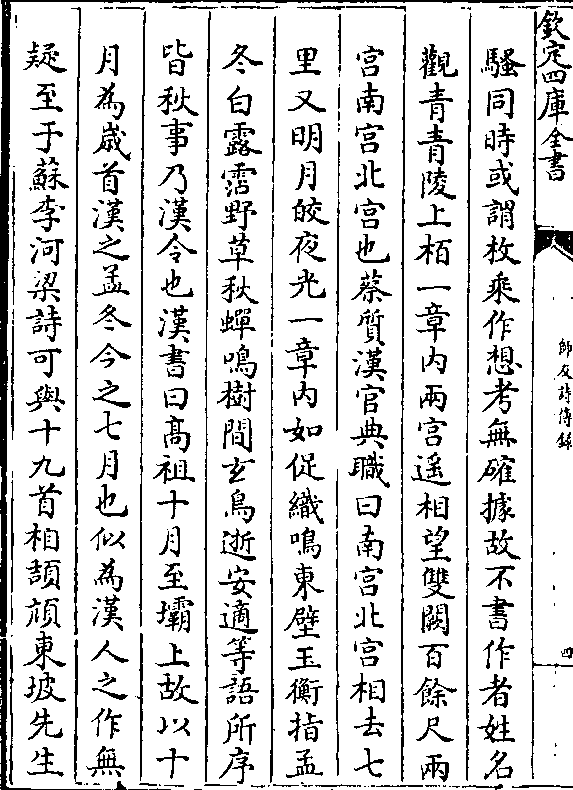 欽定四庫全書
師友詩傳錄
四
騷同時或謂枚乘作想考無確據故不書作者姓名
觀青青陵上栢一章内兩宫遥相望雙闕百餘尺兩
宫南宫北宫也蔡質漢官典職曰南宫北宫相去七
里又明月皎夜光一章内如促織鳴東壁玉衡指孟
冬白露霑野草秋蟬鳴樹間玄鳥逝安適等語所序
皆秋事乃漢令也漢書曰髙祖十月至壩上故以十
月為嵗首漢之孟冬今之七月也似為漢人之作無
疑至于蘇李河梁詩可與十九首相頡頏東坡先生